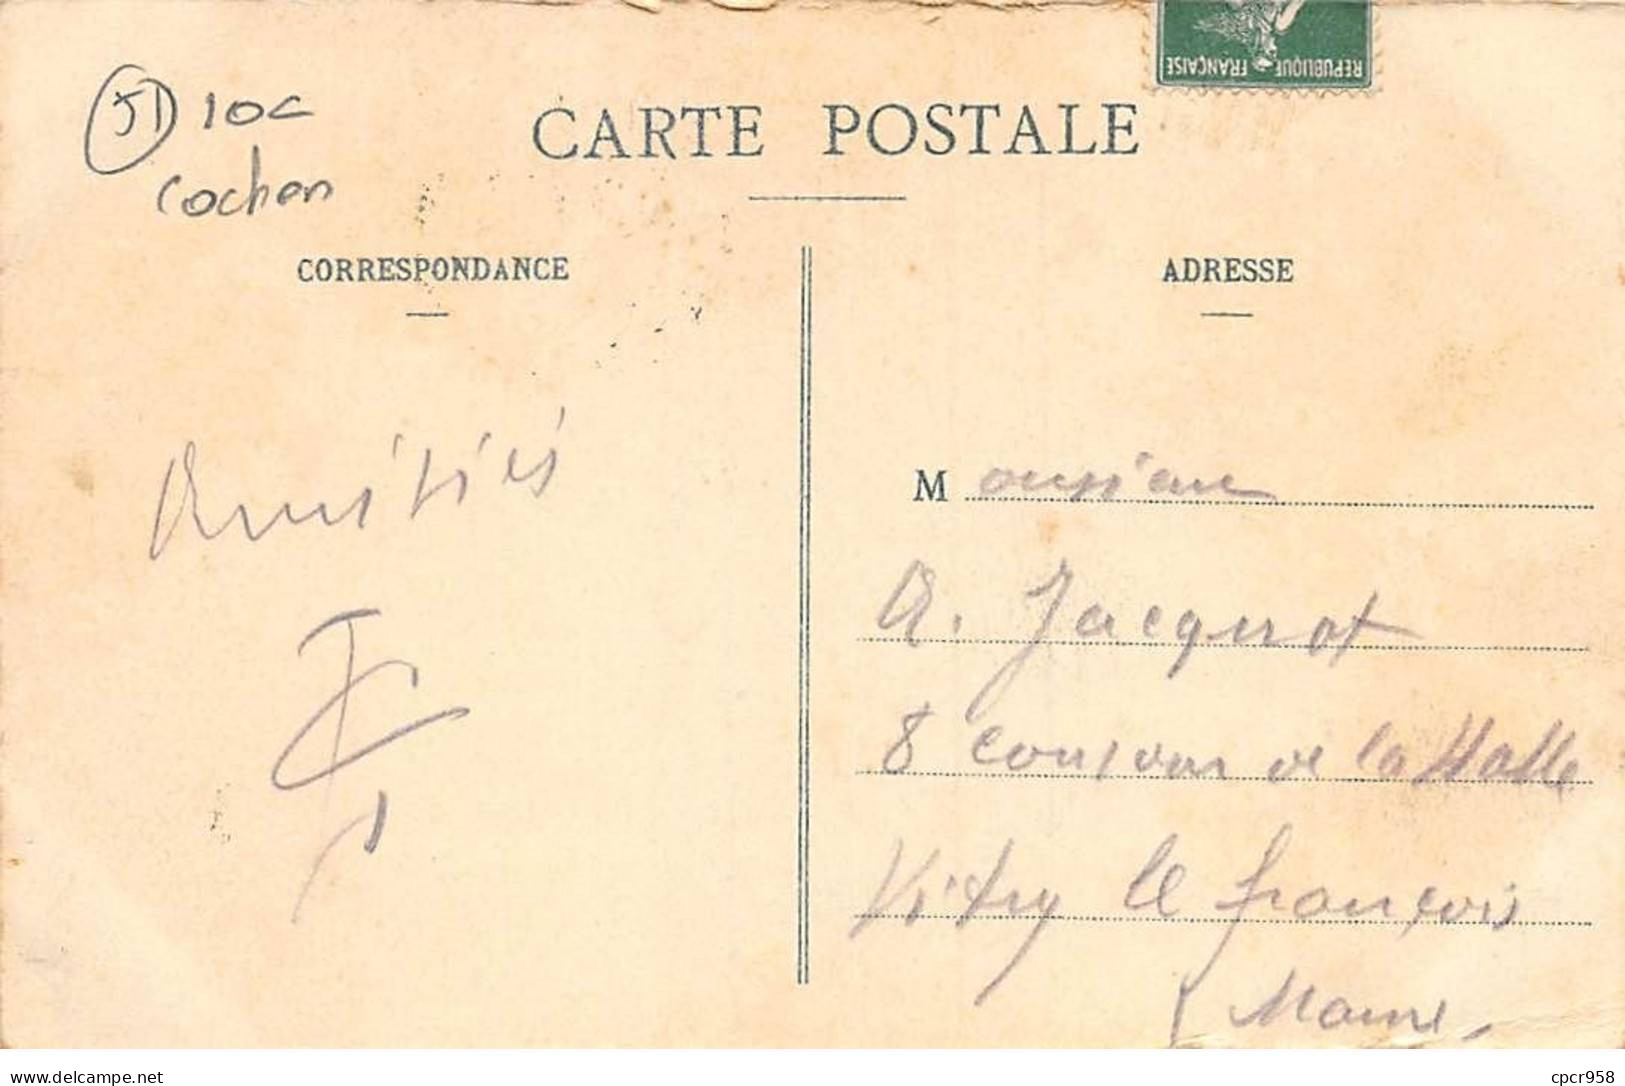 REPUBLIQUE FRANÇAISE
51 10c
Cochon
CARTE POSTALE
CORRESPONDANCE
ADRESSE
Amitiés
Monsieur
A. Jacquot
8 de la Halle
Vitry le françois
Marne
www.delcampe.net
cpcr958